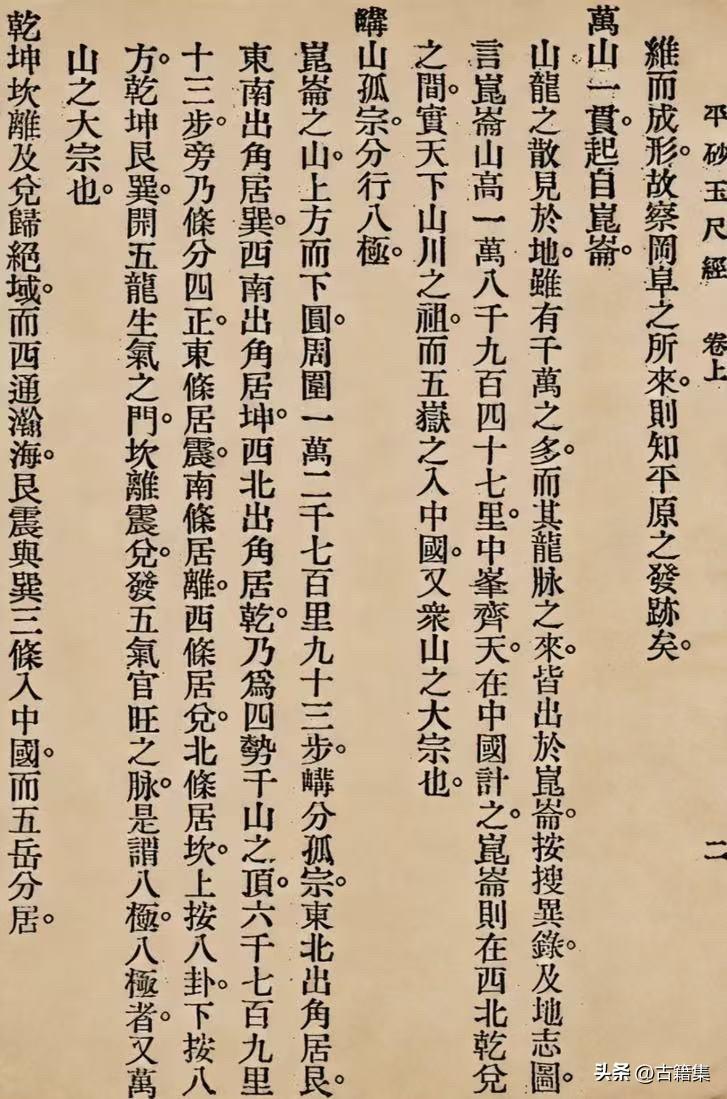 平砂玉尺經　卷上　二
維而成形。故察岡阜之所來。則知平原之發跡矣。
萬山一貫。起自崑崙。
山龍之散見於地。雖有千萬之多。而其龍脉之來。皆出於崑崙。按搜異錄。及地志圖。
言崑崙山高一萬八千九百四十七里。中峯齊天。在中國計之。崑崙則在西北乾兌
之間。實天下山川之祖。而五嶽之入中國。又衆山之大宗也。
嶹山孤宗。分行八極。
崑崙之山。上方而下圓。周圍一萬二千七百里九十三步。嶹分孤宗。東北出角居艮。
東南出角居巽。西南出角居坤。西北出角居乾。乃爲四勢千山之頂。六千七百九里
十三步。旁乃條分四正。東條居震。南條居離。西條居兌。北條居坎。上按八卦。下按八
方。乾坤艮巽。開五龍生氣之門。坎離震兌。發五氣官旺之脉。是謂八極。八極者。又萬
山之大宗也。
乾坤坎離及兌歸絕域。而西通瀚海。艮震與巽三條入中國。而五岳分居。
头条 @古籍集